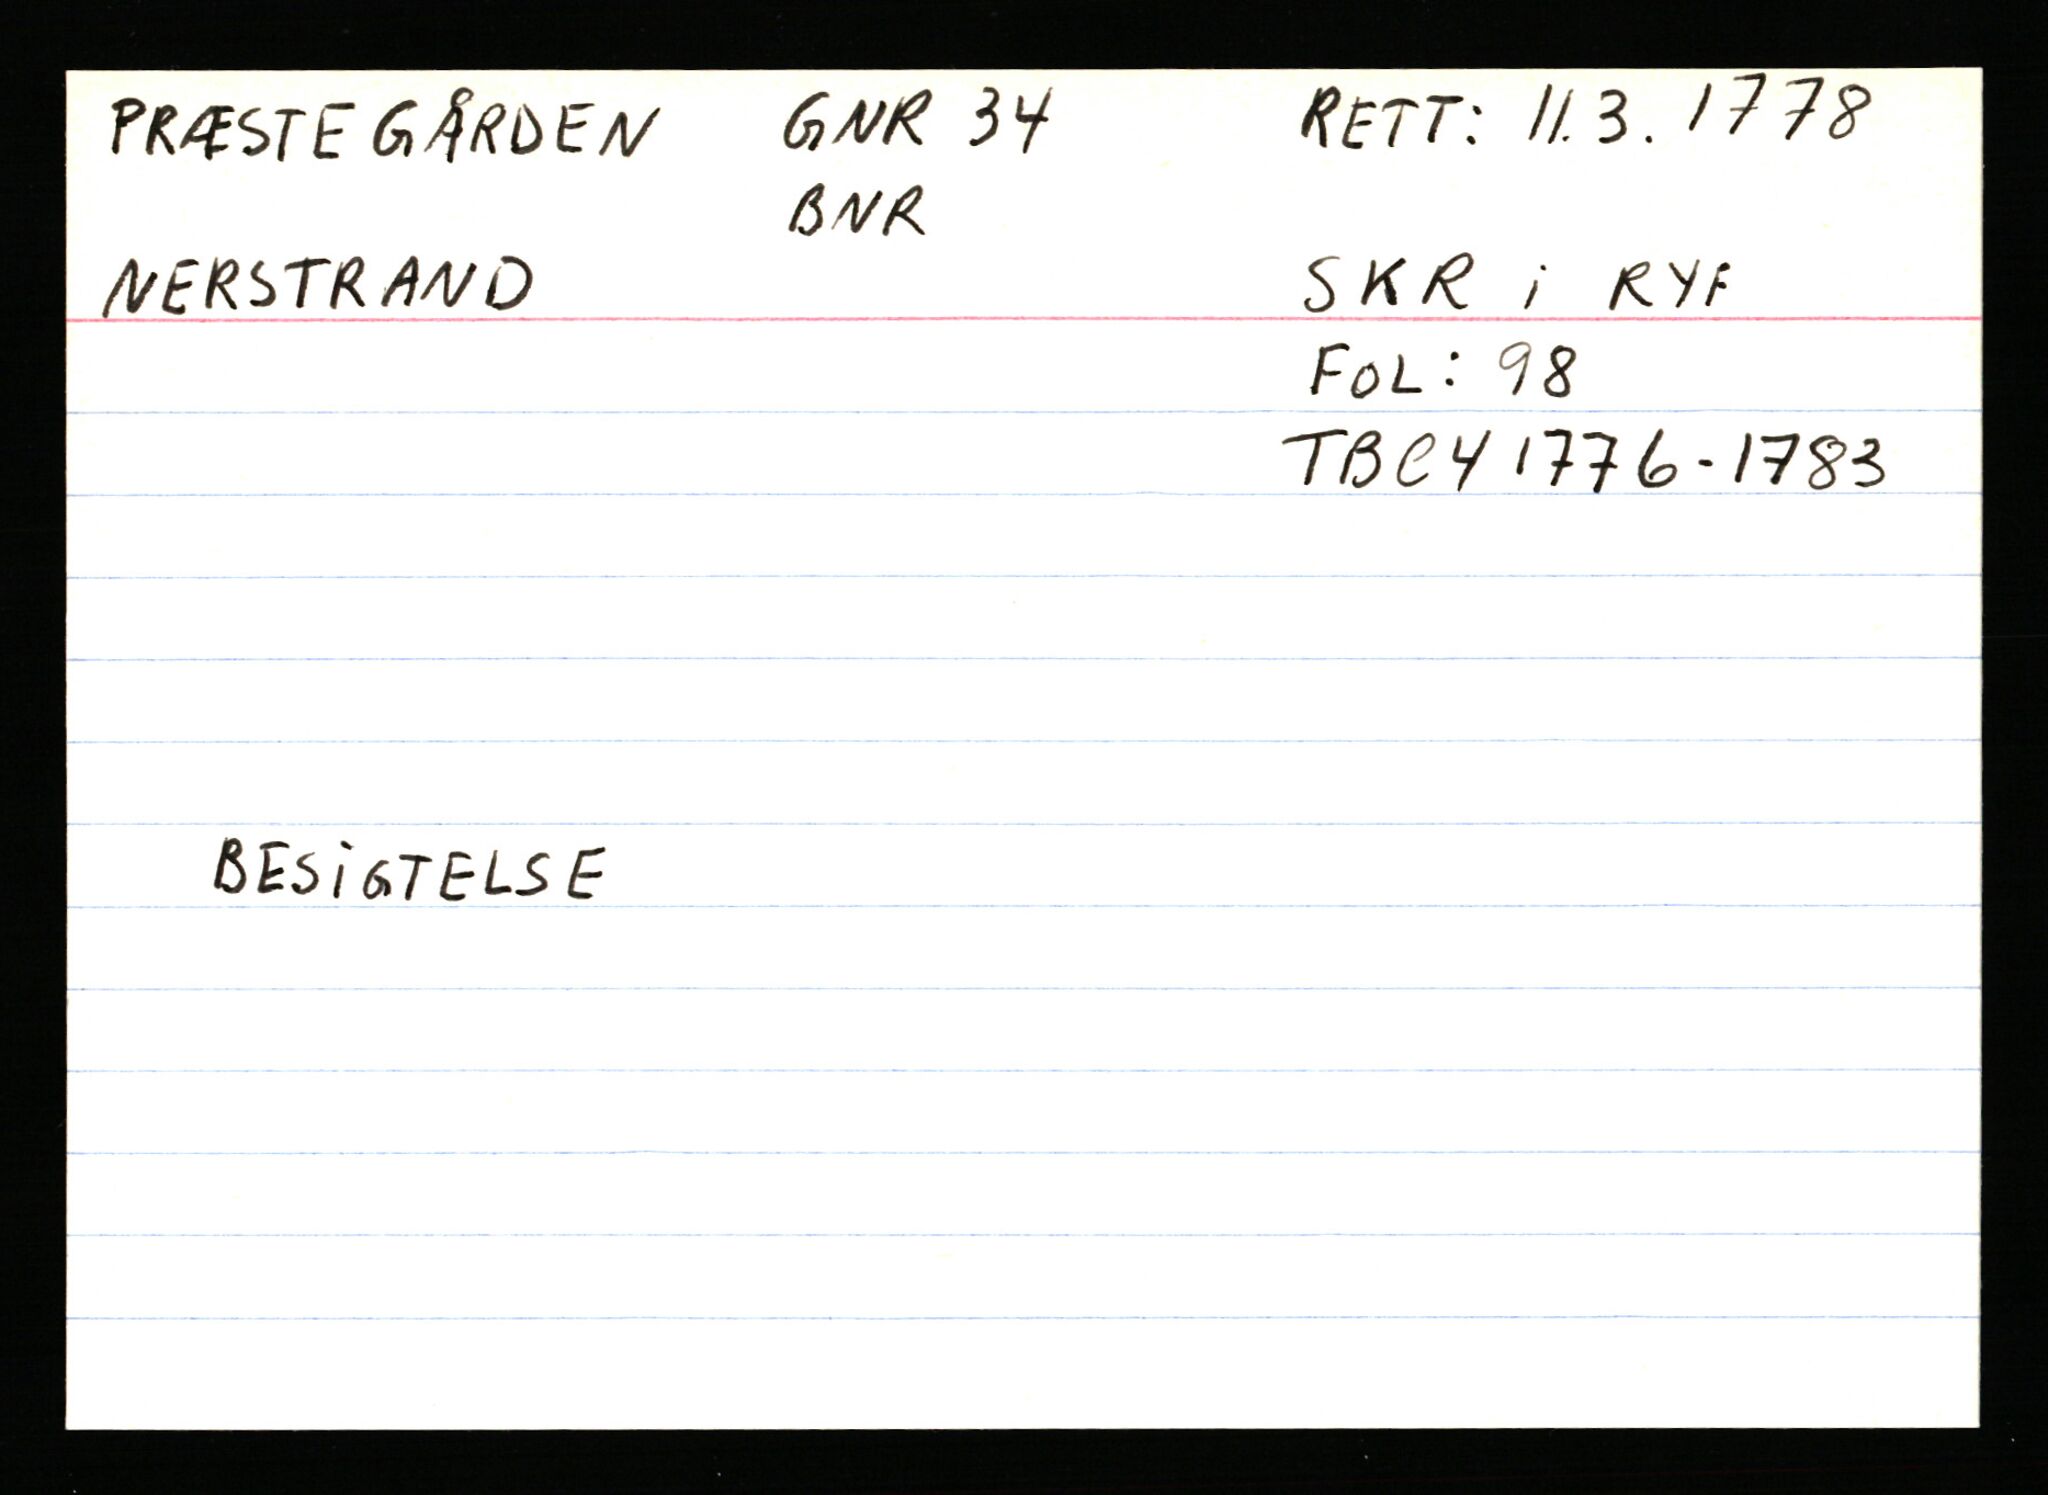 PRÆSTEGÅRDEN GNR 34 RETT: 11.3.1778
BNR
NERSTRAND SKR i RYF
FOL: 98
TBC4 1776-1783
BESiGTELSE